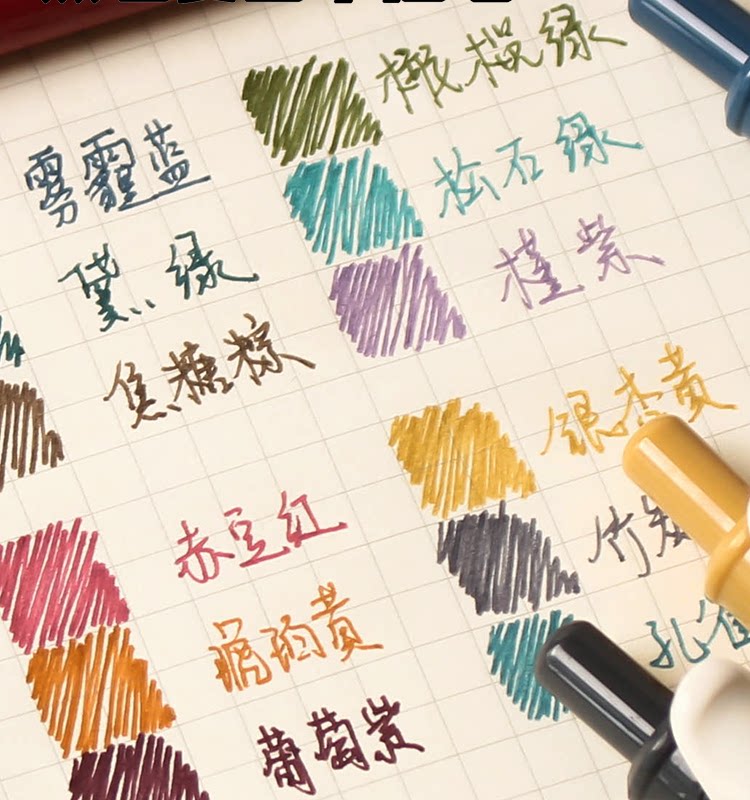 雾霾蓝
黛绿
焦糖棕
赤豆红
琥珀黄
葡萄紫
橄榄绿
松石绿
槿紫
银杏黄
竹
孔雀